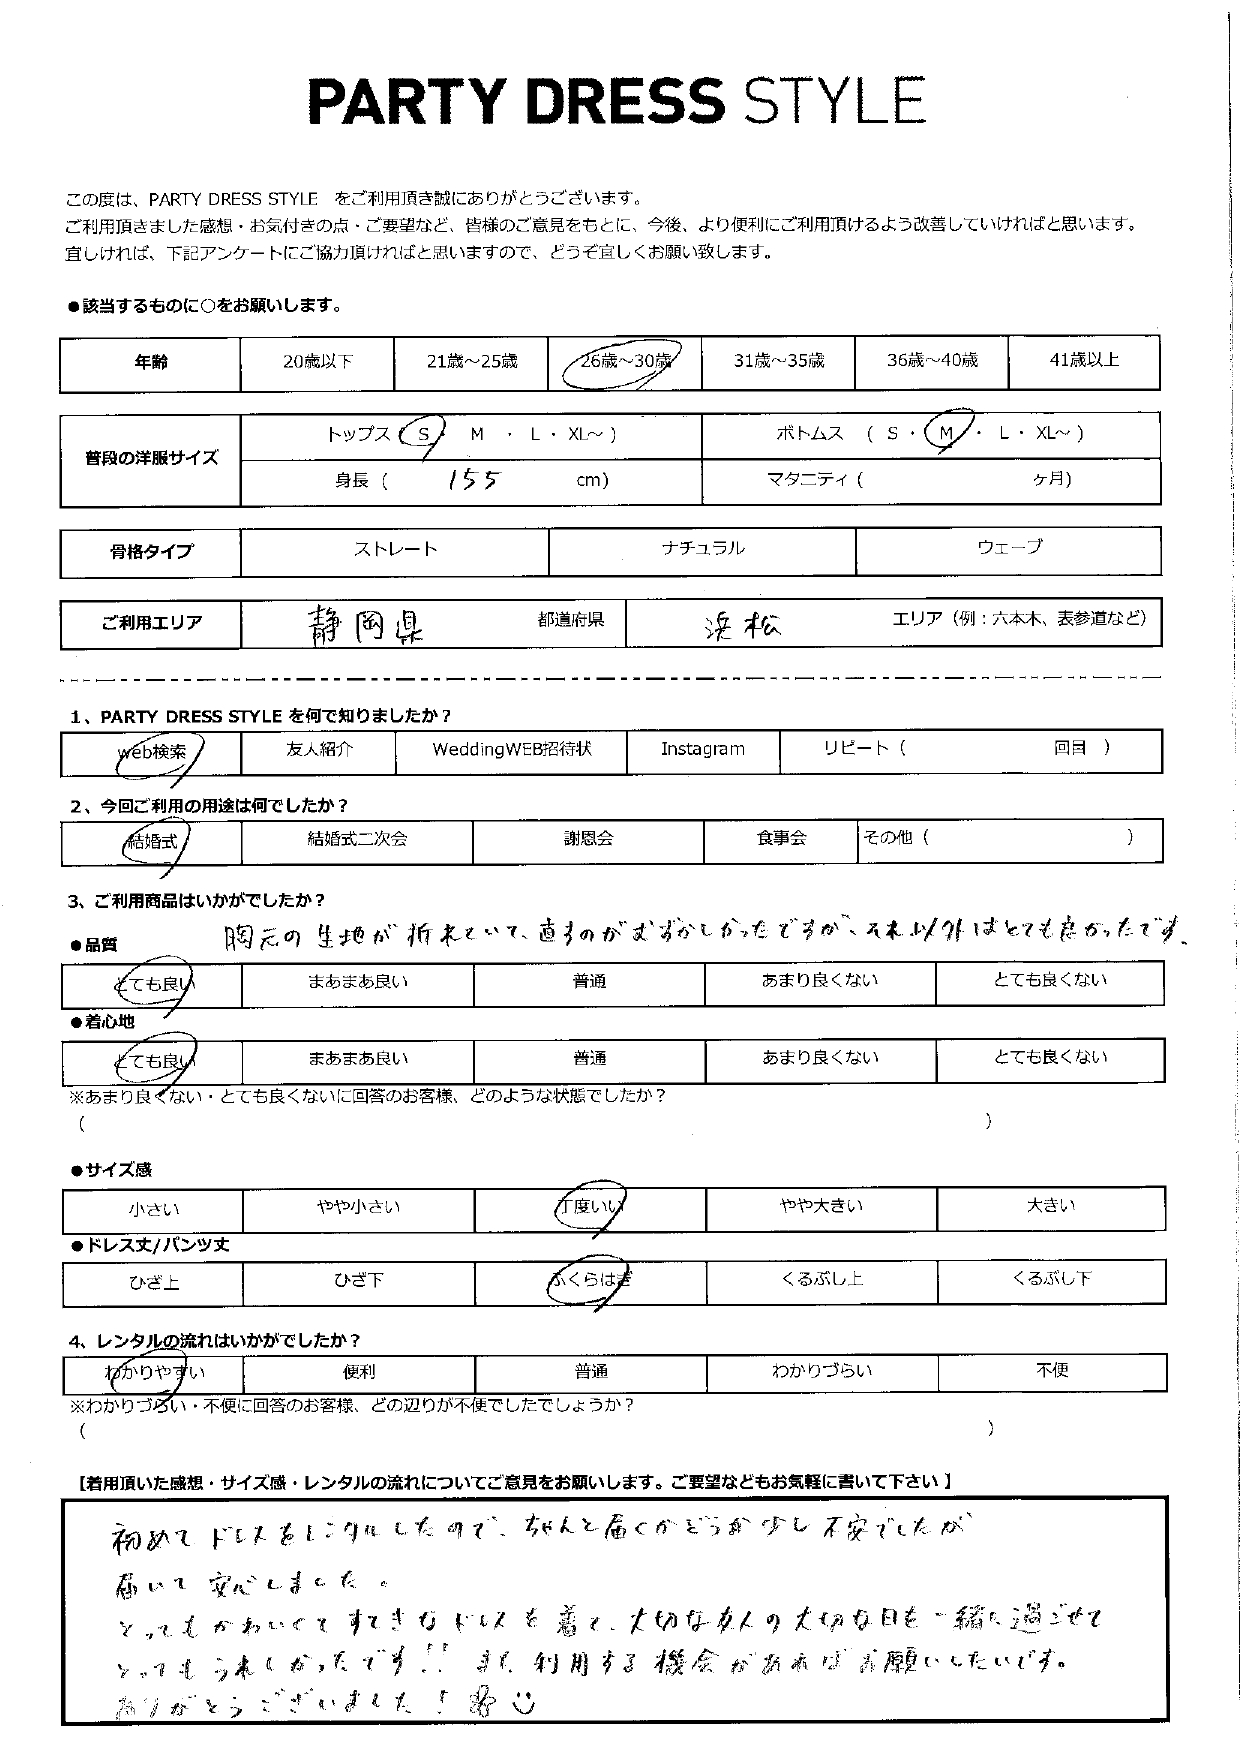 PARTY DRESS STYLE
この度は、PARTY DRESS STYLE をご利用頂き誠にありがとうございます。
ご利用頂きました感想・お気付きの点・ご要望など、皆様のご意見をもとに、今後、より便利にご利用頂けるよう改善していければと思います。
宜しければ、下記アンケートにご協力頂ければと思いますので、どうぞ宜しくお願い致します。
●該当するものに○をお願いします。
年齢 20歳以下 21歳～25歳 26歳～30歳 31歳～35歳 36歳～40歳 41歳以上
普段の洋服サイズ トップス ( S ・ M ・ L ・ XL～ ) ボトムス ( S ・ M ・ L ・ XL～ )
身長 ( 155 cm) マタニティ ( ヶ月)
骨格タイプ ストレート ナチュラル ウェーブ
ご利用エリア 静岡県 都道府県 浜松 エリア (例：六本木、表参道など)
1、PARTY DRESS STYLE を何で知りましたか？
web検索 友人紹介 WeddingWEB招待状 Instagram リピート ( 回目 )
2、今回ご利用の用途は何でしたか？
結婚式 結婚式二次会 謝恩会 食事会 その他 ( )
3、ご利用商品はいかがでしたか？
●品質 胸元の生地が折れていて、直すのがむずかしかったですが、それ以外はとても良かったです。
とても良い まあまあ良い 普通 あまり良くない とても良くない
●着心地
とても良い まあまあ良い 普通 あまり良くない とても良くない
※あまり良くない・とても良くないに回答のお客様、どのような状態でしたか？
( )
●サイズ感
小さい やや小さい 丁度いい やや大きい 大きい
●ドレス丈/パンツ丈
ひざ上 ひざ下 ふくらはぎ くるぶし上 くるぶし下
4、レンタルの流れはいかがでしたか？
わかりやすい 便利 普通 わかりづらい 不便
※わかりづらい・不便に回答のお客様、どの辺りが不便でしたでしょうか？
( )
【着用頂いた感想・サイズ感・レンタルの流れについてご意見をお願いします。ご要望などもお気軽に書いて下さい】
初めてドレスをレンタルしたので、ちゃんと届くかどうか少し不安でしたが
届いて安心しました。
とってもかわいくてすてきなドレスを着て、大切な友人の大切な日を一緒に過ごせて
とってもうれしかったです!! また利用する機会があればお願いしたいです。
ありがとうございました!